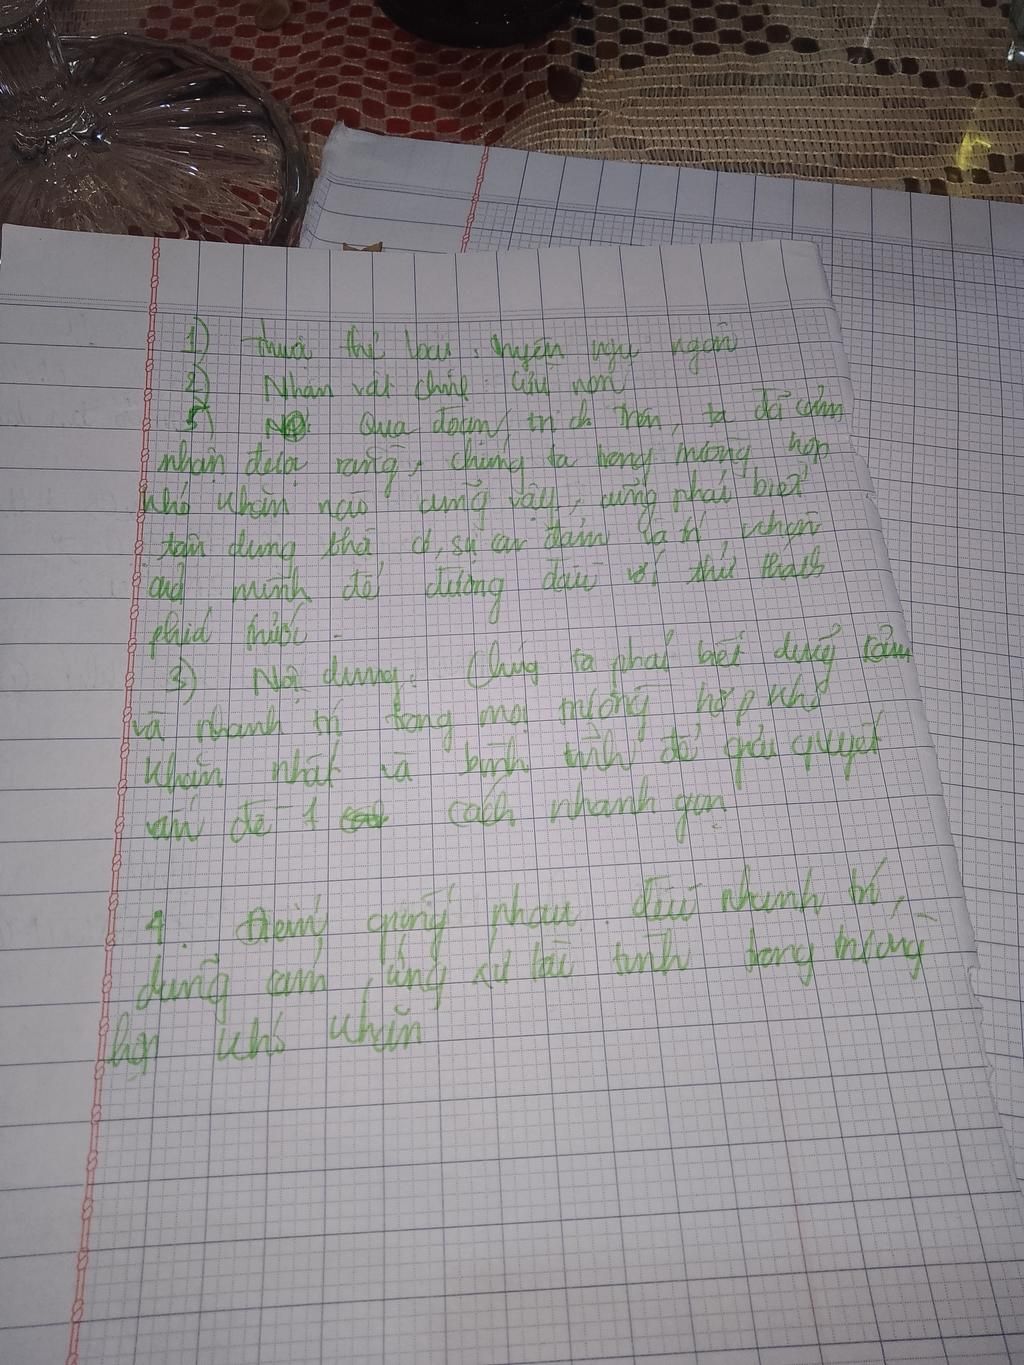 1) Thuộc thể loại : truyện ngụ ngôn
2) Nhân vật chính : Cừu non
5) Qua đoạn trích trên, ta đã cảm
nhận được rằng, chúng ta trong trường hợp
khó khăn nào cũng vậy, cũng phải biết
tận dụng sự can đảm và trí khôn
của mình để đương đầu với thử thách
phía trước.
3) Nội dung : Chúng ta phải biết dũng cảm
và nhanh trí trong mọi trường hợp khó
khăn nhất và bình tĩnh để giải quyết
vấn đề 1 cách nhanh gọn
4. Điểm giống nhau : đều nhanh trí,
dũng cảm, ứng xử tài tình trong trường
hợp khó khăn